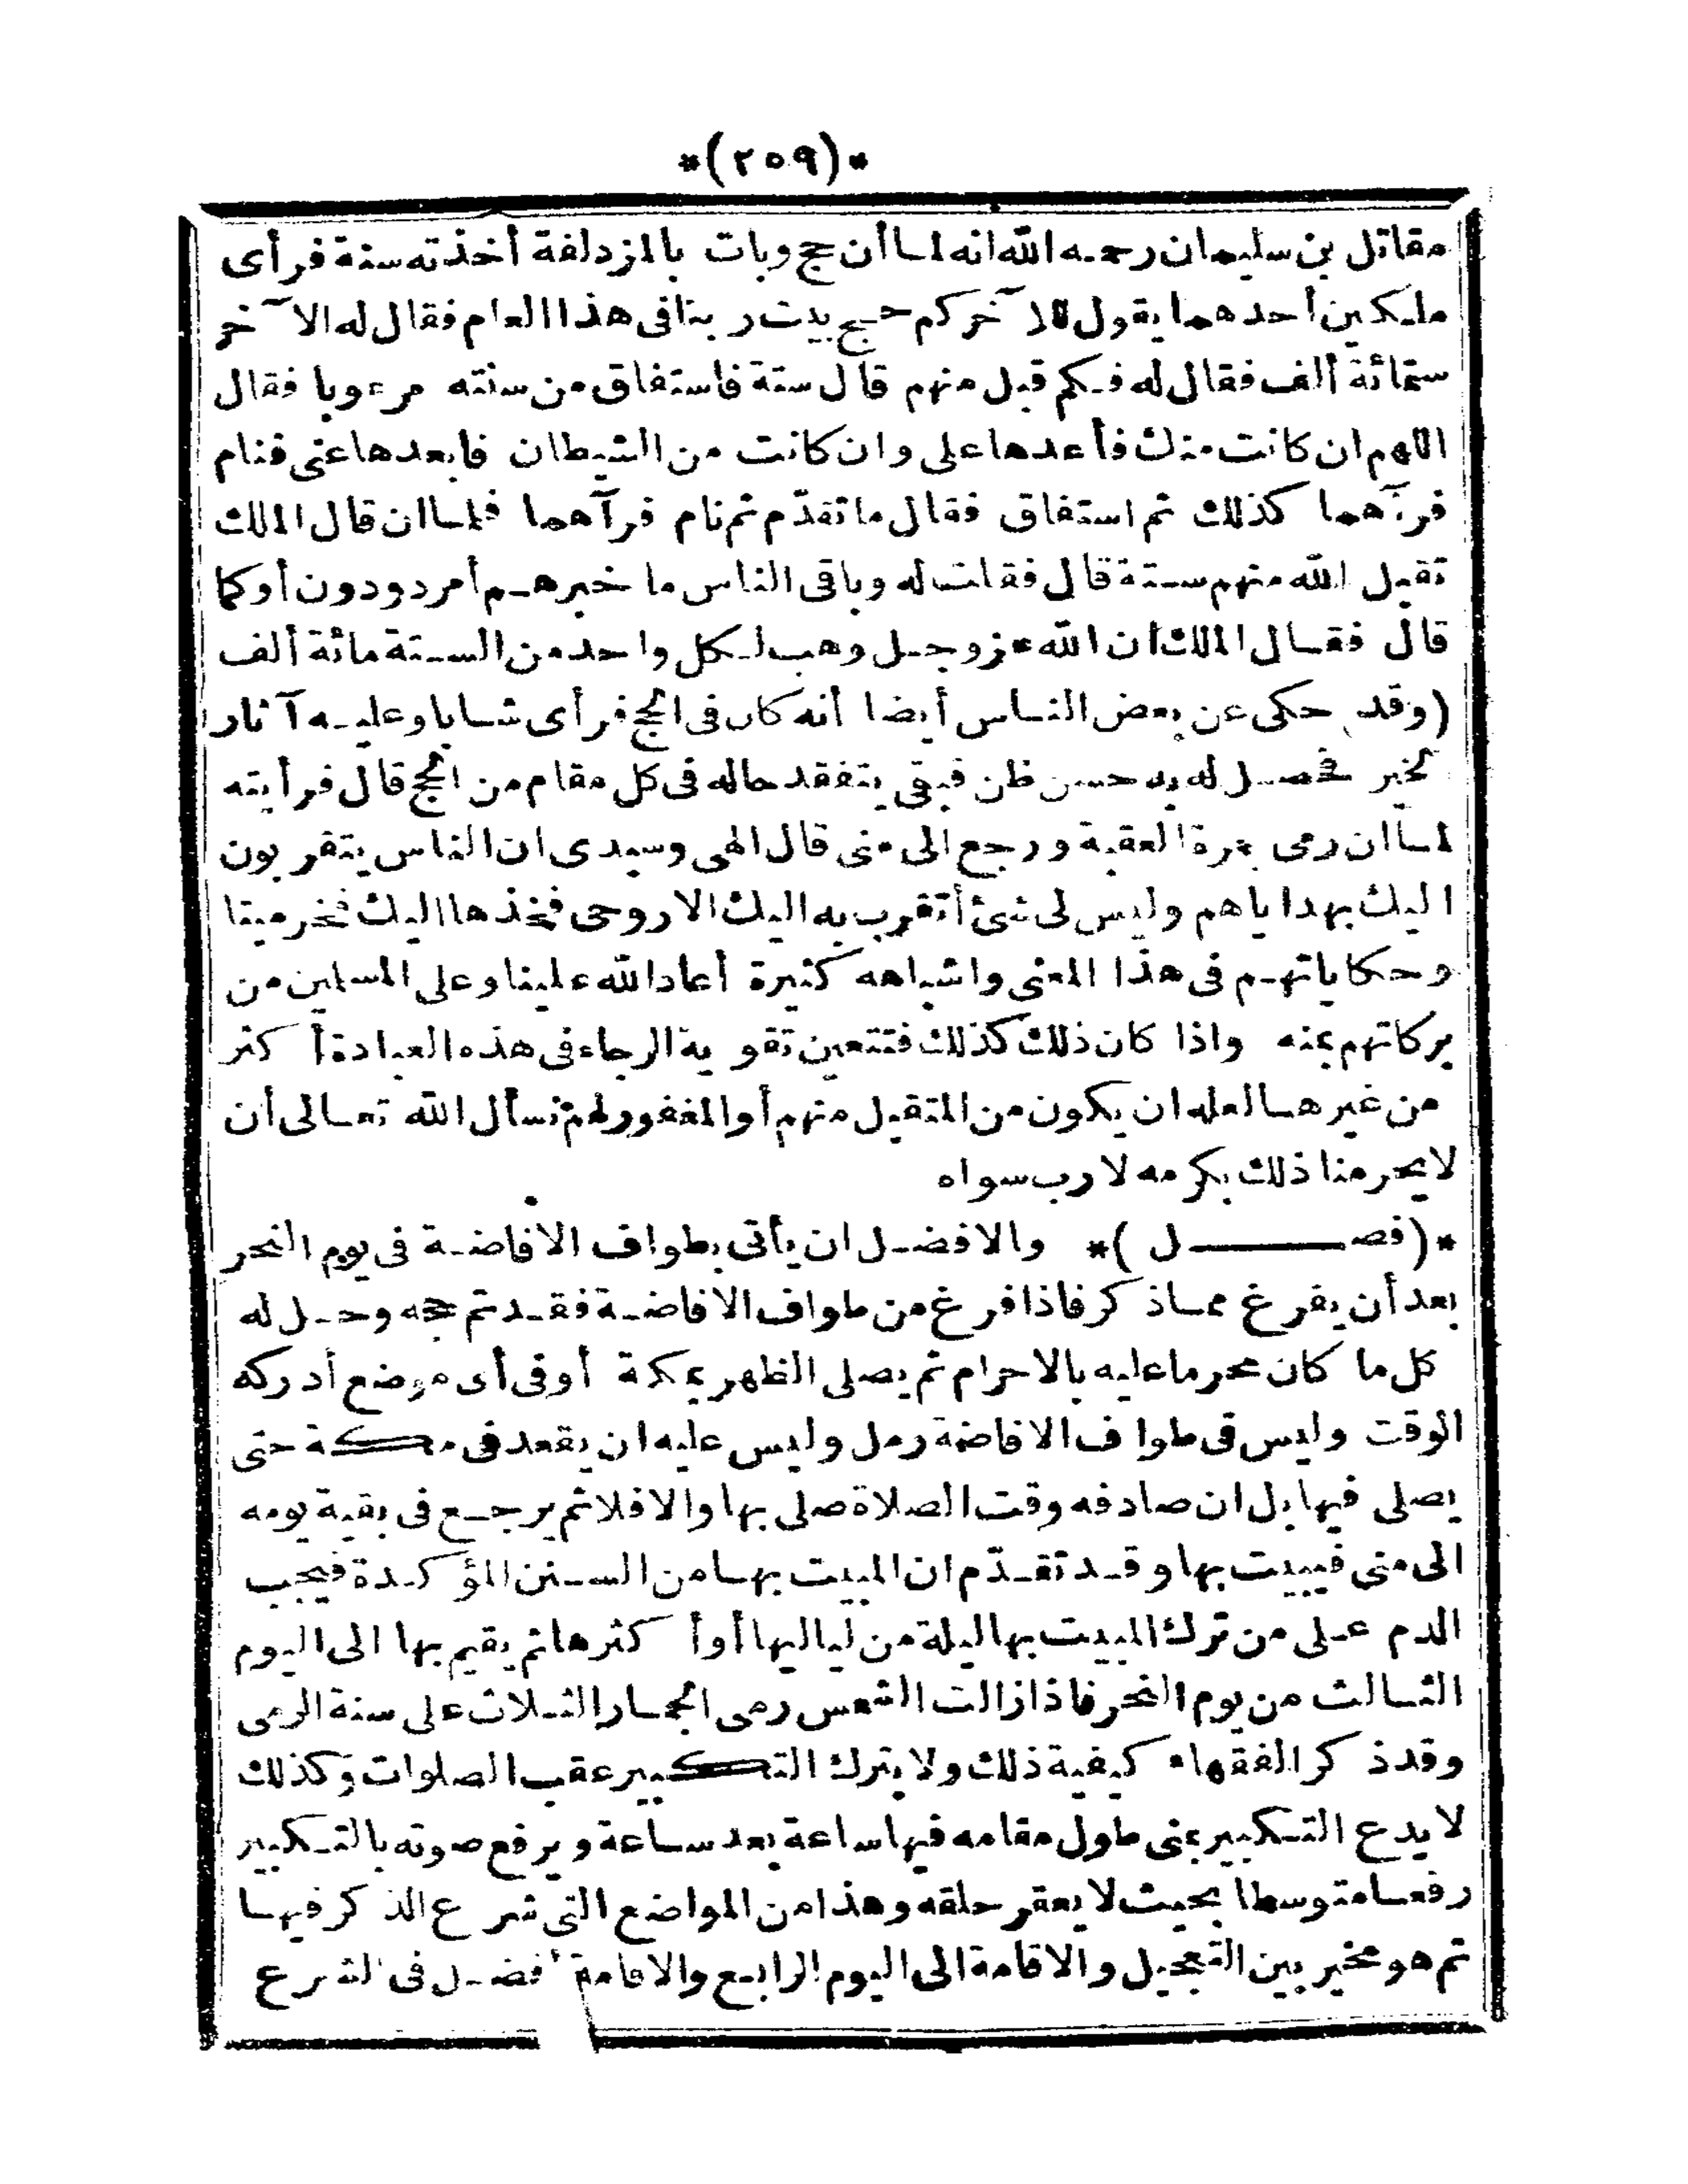 *(٢٥٩)*
مقاتل بن سليمان رحمه الله انه لما أن حج وبات بالمزدلفة أخذته سنة فرأى
ملكين أحدهما يقول للآخر كم حج بيت ربنا فى هذا العام فقال له الآخر
ستمائة ألف فقال له فكم قبل منهم قال ستة فاستفاق من سنته مرعوبا فقال
اللهم ان كانت منك فأعدها على وان كانت من الشيطان فابعدها عنى فنام
فرآهما كذلك ثم استفاق فقال ما تقدّم ثم نام فرآهما فلما ان قال الملك
تقبل الله منهم ستة قال فقلت له وباقى الناس ما خبرهم أمردودون أو كما
قال فقال الملك ان الله عزوجل وهب لكل واحد من الستة مائة ألف
(وقد حكى عن بعض الناس أيضا أنه كان فى الحج فرأى شابا وعليه آثار
الخير فحصل له به حسن ظن فبقى يتفقد حاله فى كل مقام من الحج قال فرأيته
لما ان رمى جمرة العقبة ورجع الى منى قال الهى وسيدى ان الناس يتقربون
اليك بهداياهم وليس لى شئ أتقرب به اليك الا روحى فخذها اليك فخر ميتا
وحكاياتهم فى هذا المعنى واشباهه كثيرة أعاد الله علينا وعلى المسلمين من
بركاتهم بمنه واذا كان ذلك كذلك فتتعين تقوية الرجاء فى هذه العبادة أكثر
من غيرها لعله ان يكون من المتقبل منهم أو المغفور لهم نسأل الله تعالى أن
لا يحرمنا ذلك بكرمه لا رب سواه
*(فصــــل)* والافضل ان يأتى بطواف الافاضة فى يوم النحر
بعد أن يفرغ مما ذكر فاذا فرغ من طواف الافاضة فقد تم حجه وحل له
كل ما كان محرما عليه بالاحرام ثم يصلى الظهر بمكة أو فى أى موضع أدركه
الوقت وليس فى طواف الافاضة رمل وليس عليه ان يقعد فى مكة حتى
يصلى فيها بل ان صادفه وقت الصلاة صلى بها والا فلا ثم يرجع فى بقية يومه
الى منى فيبيت بها وقد تقدّم ان المبيت بها من السنن المؤكدة فيجب
الدم على من ترك المبيت بها ليلة من لياليها أو أكثرها ثم يقيم بها الى اليوم
الثالث من يوم النحر فاذا زالت الشمس رمى الجمار الثلاث على سنة الرمى
وقد ذكر الفقهاء كيفية ذلك ولا يترك التكبير عقب الصلوات وكذلك
لا يدع التكبير بمنى طول مقامه فيها ساعة بعد ساعة ويرفع صوته بالتكبير
رفعا متوسطا بحيث لا يعقر حلقه وهذا من المواضع التى شرع الذكر فيها
ثم هو مخير بين التعجيل والاقامة الى اليوم الرابع والاقامة أفضل فى الشرع